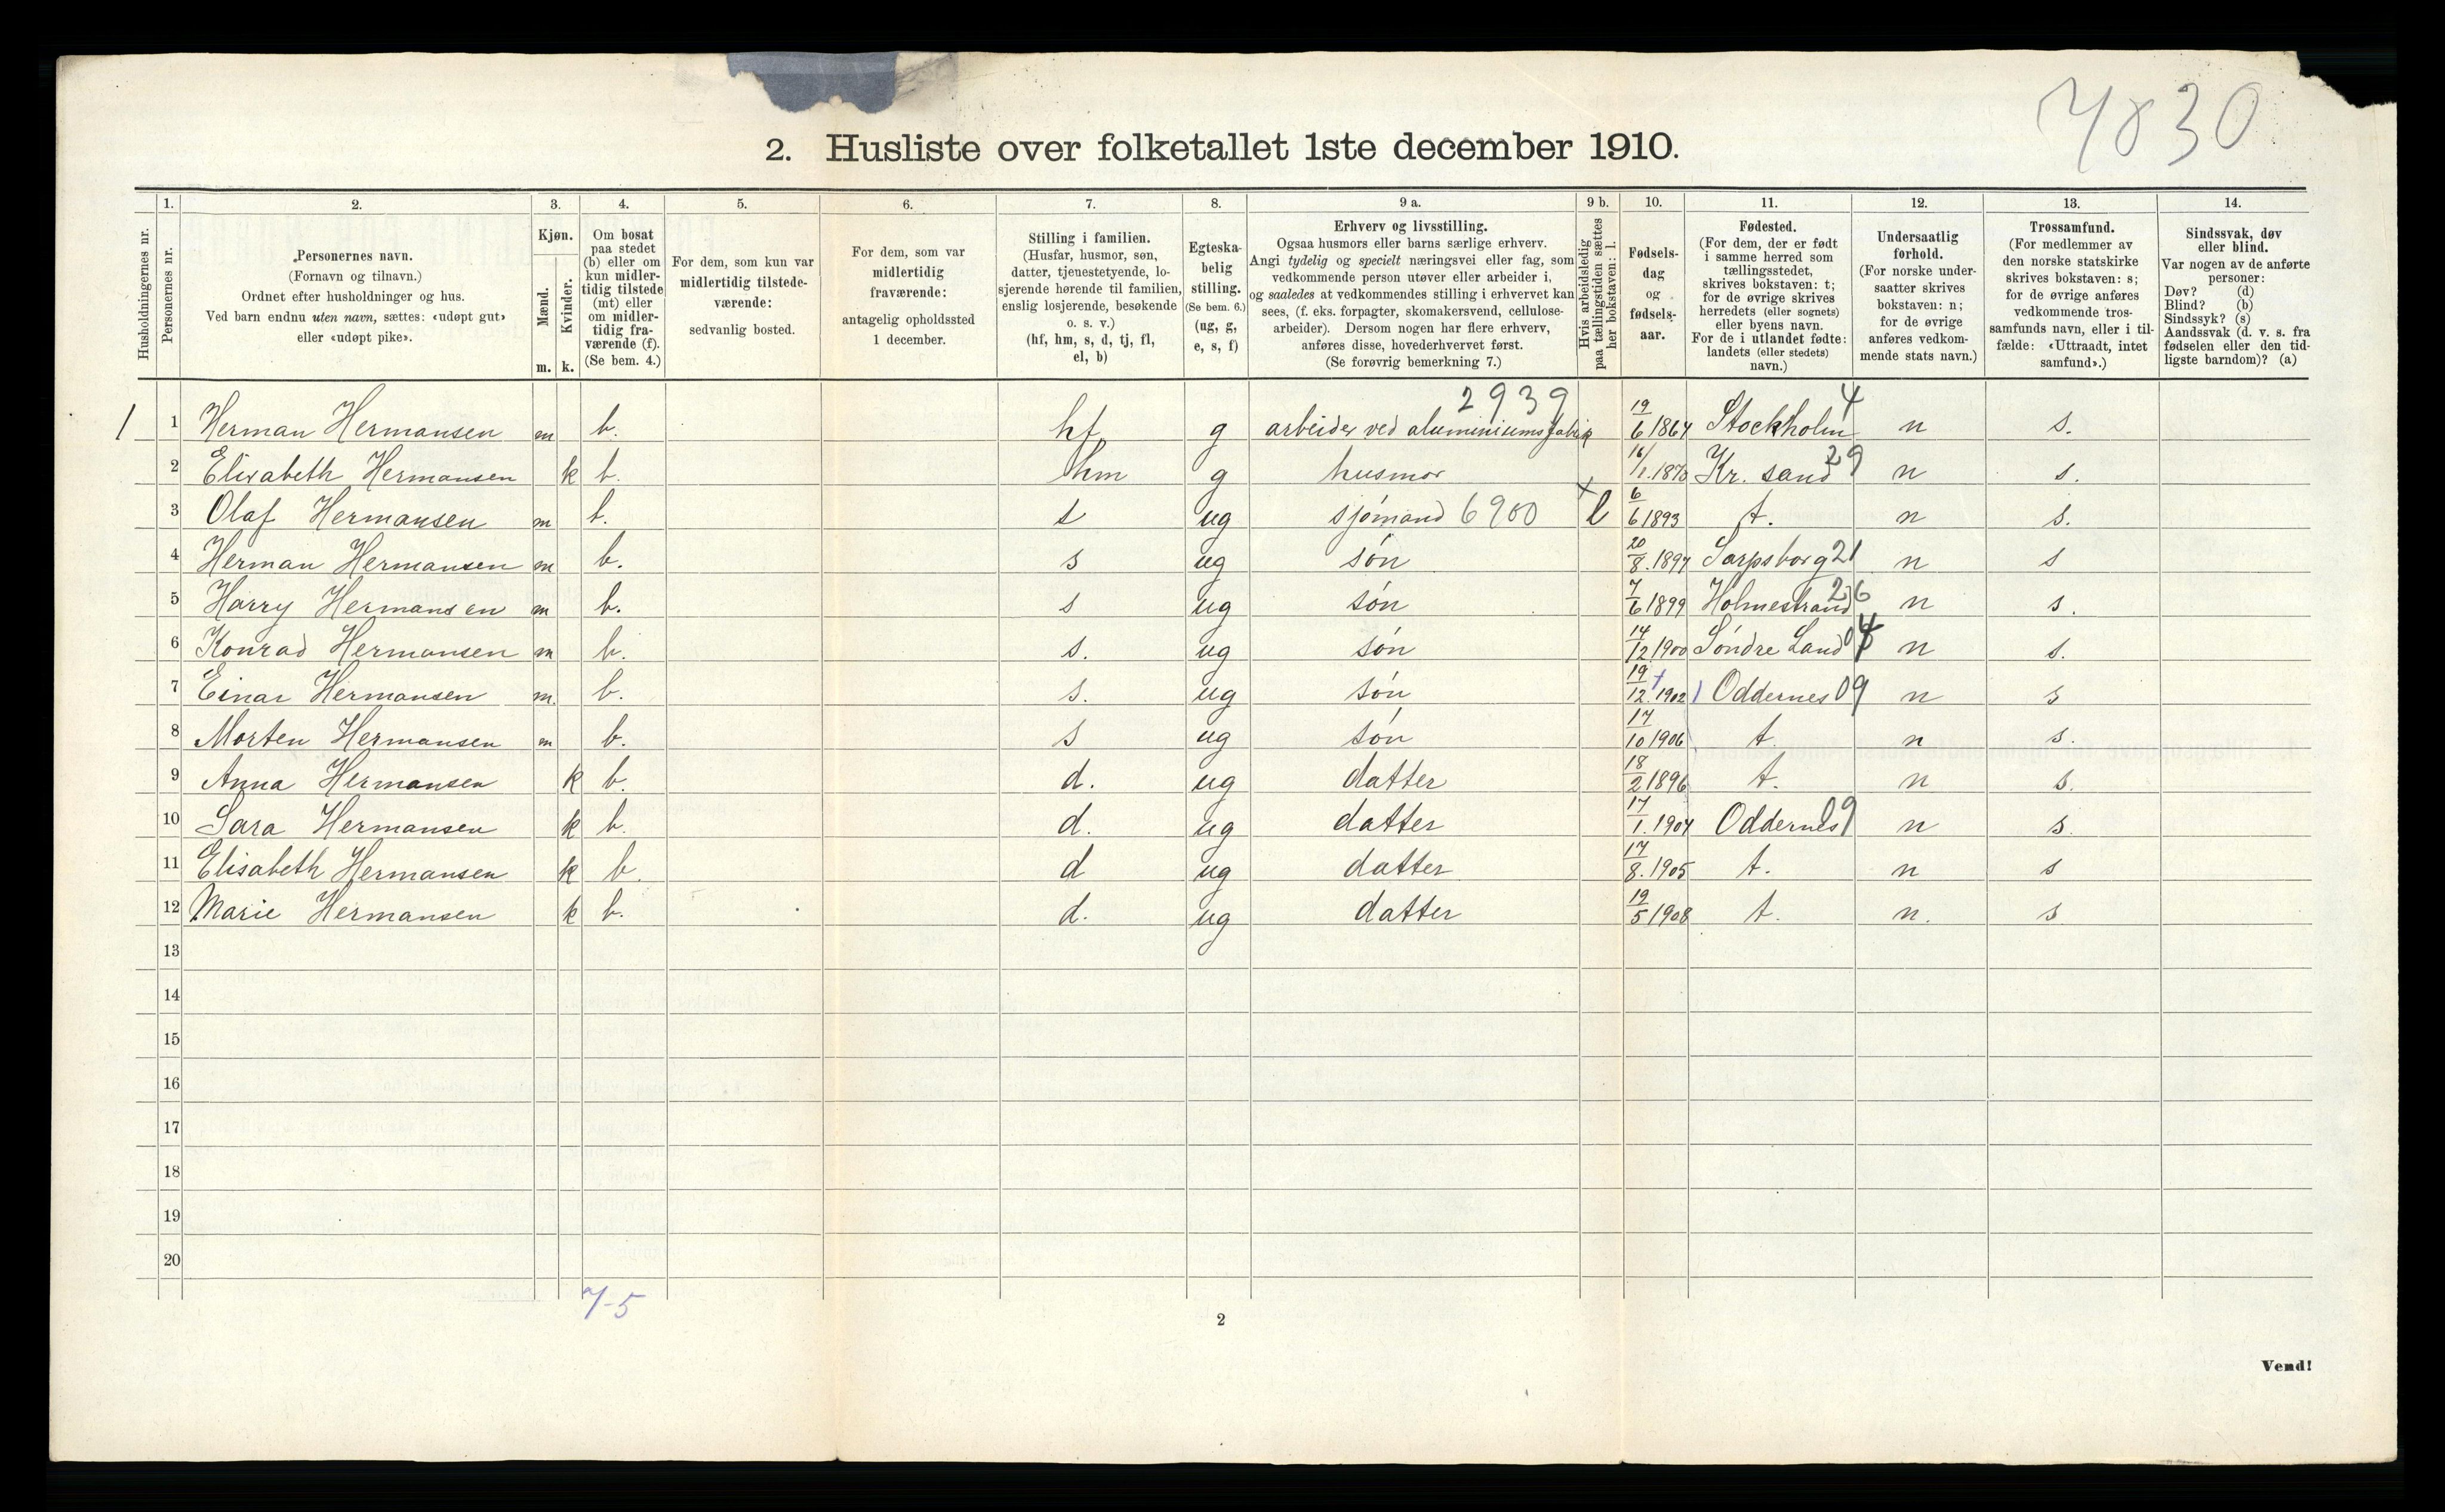 7830
2. Husliste over folketallet 1ste december 1910.
Husholdningernes nr.
1.
Personernes nr.
2.
Personernes navn.
(Fornavn og tilnavn.)
Ordnet efter husholdninger og hus.
Ved barn endnu uten navn, sættes: «udøpt gut»
eller «udøpt pike».
3.
Kjøn.
Mænd.
Kvinder.
m. k.
4.
Om bosat
paa stedet
(b) eller om
kun midler-
tidig tilstede
(mt) eller
om midler-
tidig fra-
værende (f).
(Se bem. 4.)
5.
For dem, som kun var
midlertidig tilstede-
værende:
sedvanlig bosted.
6.
For dem, som var
midlertidig
fraværende:
antagelig opholdssted
1 december.
7.
Stilling i familien.
(Husfar, husmor, søn,
datter, tjenestetyende, lo-
sjerende hørende til familien,
enslig losjerende, besøkende
o. s. v.)
(hf, hm, s, d, tj, fl,
el, b)
8.
Egteska-
belig
stilling.
(Se bem. 6.)
(ug, g,
e, s, f)
9 a.
Erhverv og livsstilling.
Ogsaa husmors eller barns særlige erhverv.
Angi tydelig og specielt næringsvei eller fag, som
vedkommende person utøver eller arbeider i,
og saaledes at vedkommendes stilling i erhvervet kan
sees, (f. eks. forpagter, skomakersvend, cellulose-
arbeider). Dersom nogen har flere erhverv,
anføres disse, hovederhvervet først.
(Se forøvrig bemerkning 7.)
9 b.
Hvis arbeidsledig
paa tællingstiden sættes
her bokstaven: l.
10.
Fødsels-
dag
og
fødsels-
aar.
11.
Fødested.
(For dem, der er født
i samme herred som
tællingsstedet,
skrives bokstaven: t;
for de øvrige skrives
herredets (eller sognets)
eller byens navn.
For de i utlandet fødte:
landets (eller stedets)
navn.)
12.
Undersaatlig
forhold.
(For norske under-
saatter skrives
bokstaven: n;
for de øvrige
anføres vedkom-
mende stats navn.)
13.
Trossamfund.
(For medlemmer av
den norske statskirke
skrives bokstaven: s;
for de øvrige anføres
vedkommende tros-
samfunds navn, eller i til-
fælde: «Uttraadt, intet
samfund».)
14.
Sindssvak, døv
eller blind.
Var nogen av de anførte
personer:
Døv? (d)
Blind? (b)
Sindssyk? (s)
Aandssvak (d. v. s. fra
fødselen eller den tid-
ligste barndom)? (a)
2939 4
1 1 Herman Hermansen m b. hf g arbeider ved aluminiumsfabrik 19/6 1864 Stockholm n s.
2 Elisabeth Hermansen k b. hm g husmor 16/1. 1870 Kr. sand 29 n s.
3 Olaf Hermansen m b. s ug sjømand 6900 l 6/6 1893 t. n s.
4 Herman Hermansen m b. s ug søn 20/8. 1897 Sarpsborg 21 n s
5 Harry Hermansen m b. s ug søn 7/6 1899 Holmestrand 26 n s.
6 Konrad Hermansen m b. s. ug søn 14/12 1900 Søndre Land n s.
7 Einar Hermansen m. b. s. ug søn 19/12. 1902 Oddernes 09 n s
8 Morten Hermansen m b. s ug søn 17/10 1906 t. n s.
9 Anna Hermansen k b. d. ug datter 18/2 1896 t. n s.
10 Sara Hermansen k b. d. ug datter 17/1. 1904 Oddernes 09 n s.
11 Elisabeth Hermansen k b. d ug datter 17/8. 1905 t. n s
12 Marie Hermansen k b. d. ug datter 19/5 1908 t. n. s
13
14
15
16
17
18
19
20
7-5
2
Vend!